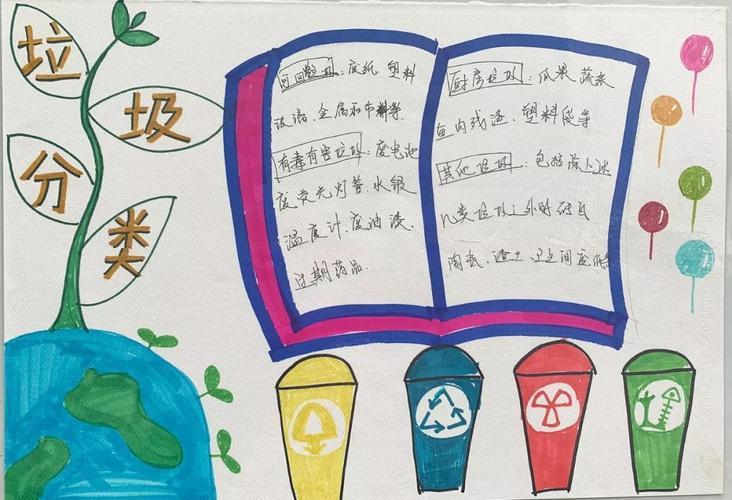 垃
圾
分
类
可回收垃圾:废纸 塑料
玻璃、金属和布料等
有毒有害垃圾:废电池
废荧光灯管、水银
温度计、废油漆、
过期药品
厨房垃圾:瓜果 蔬菜
鱼肉残渣、塑料袋等
其他垃圾:包括除上述
几类垃圾之外的砖瓦
陶瓷、渣土、卫生间废纸等